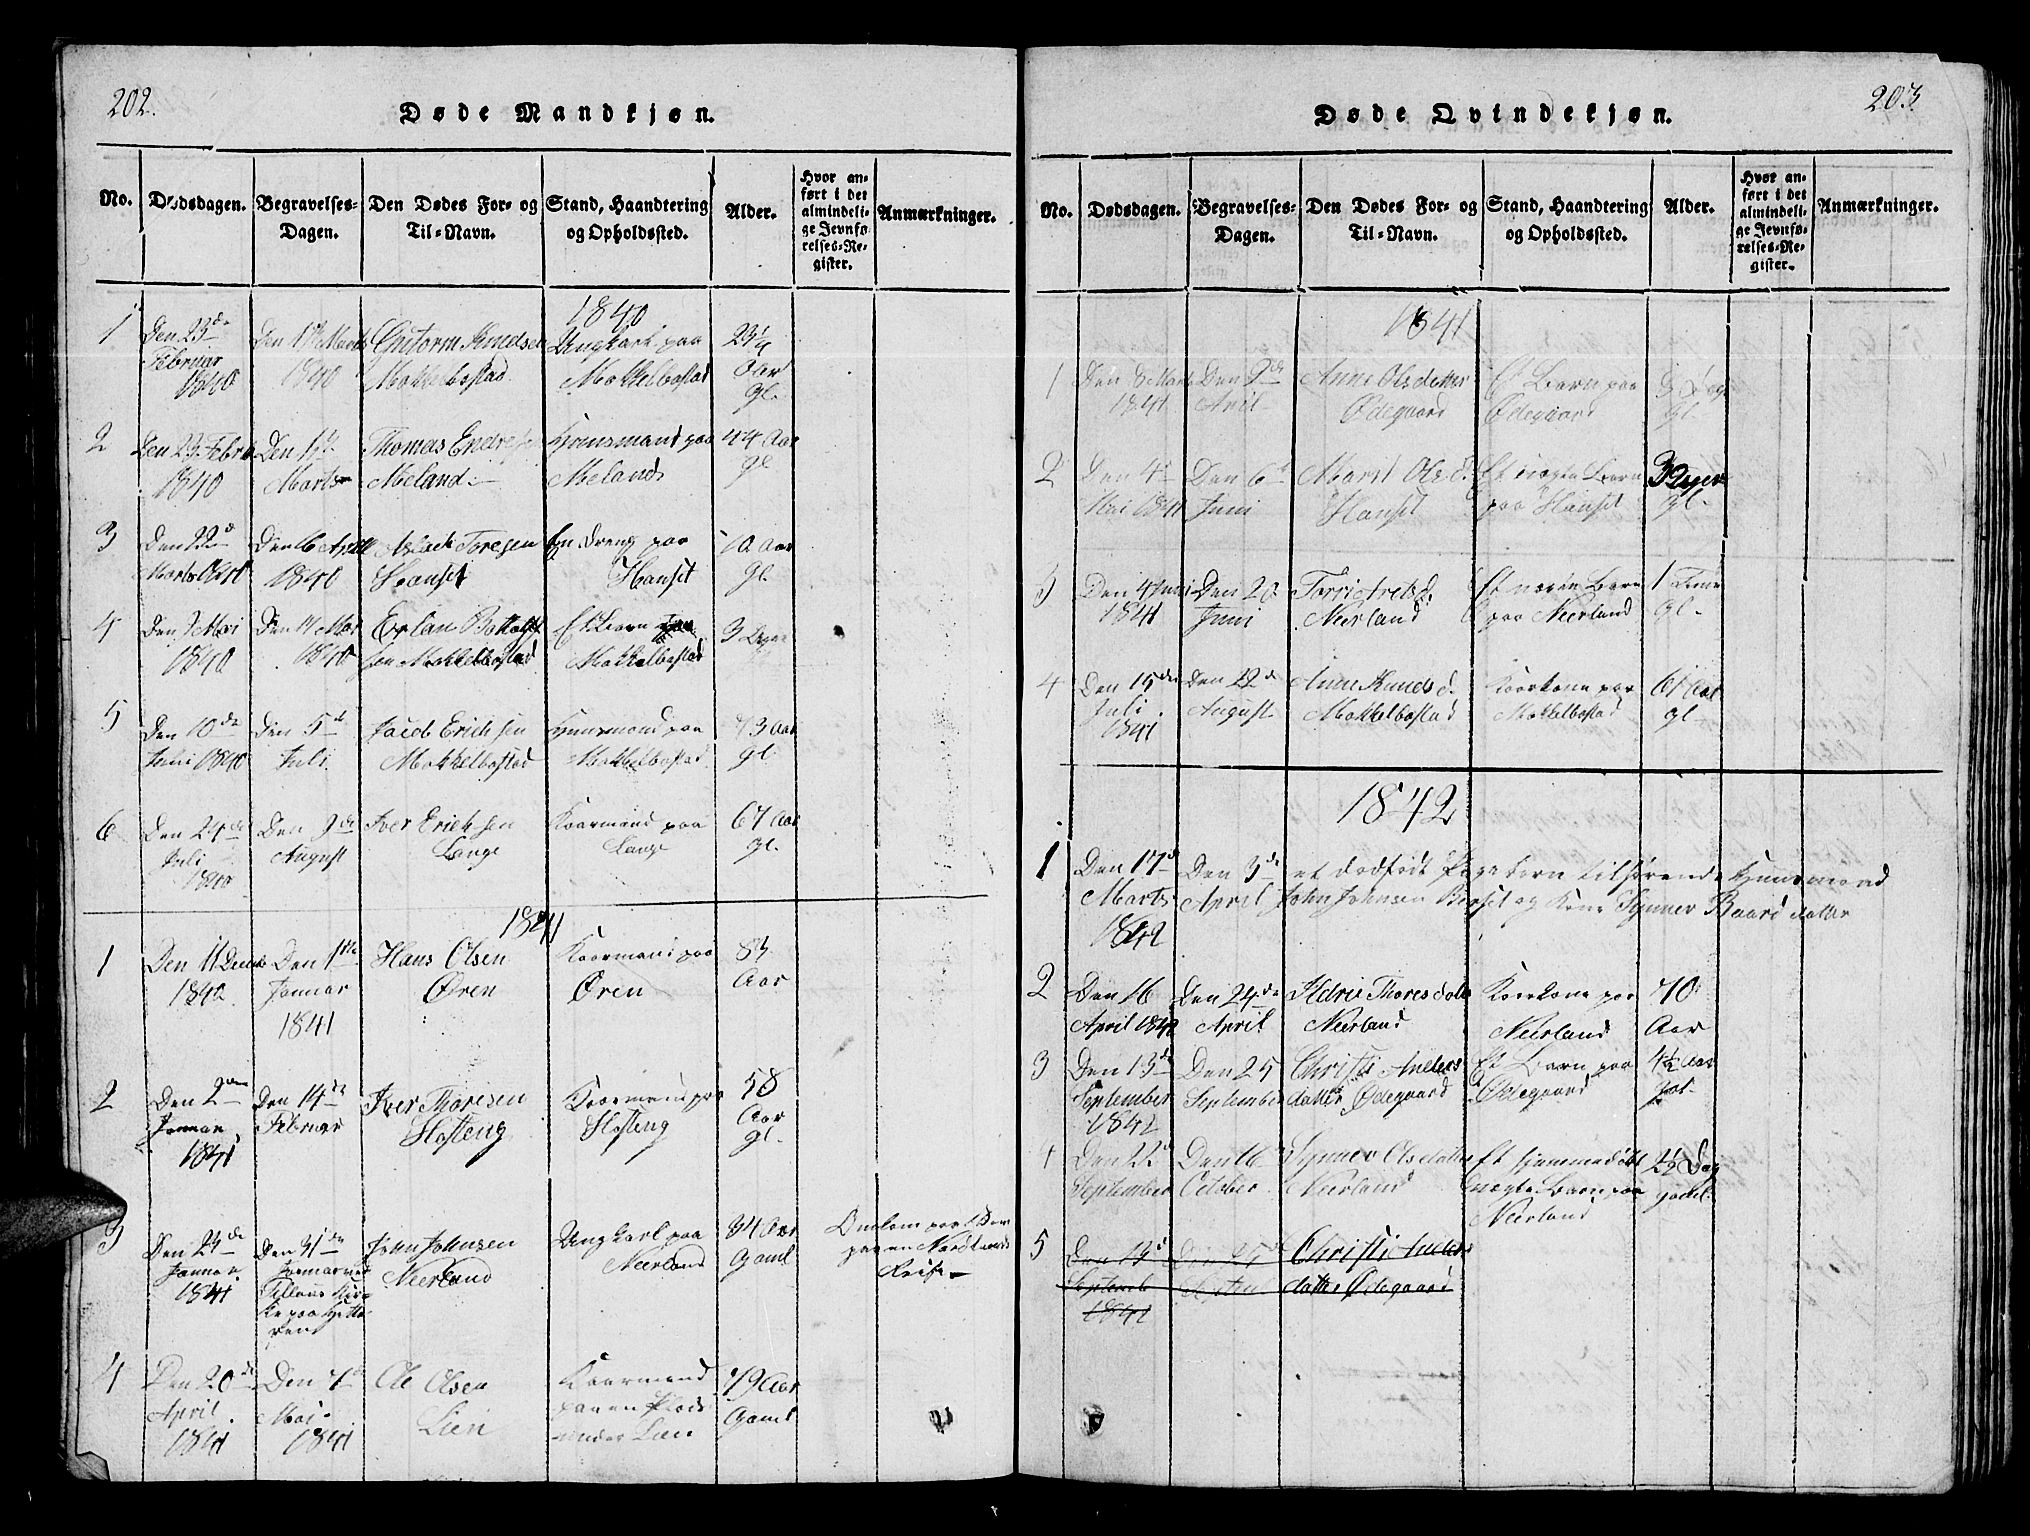 202.
Døde Mandkjøn.
No.
Dødsdagen.
Begravelses-
Dagen.
Den Dødes For- og
Til-Navn.
Stand, Haandtering
og Opholdssted.
Alder.
Hvor an-
ført i det
almindeli-
ge Jevnfø-
relses-Re-
gister.
Anmærkninger.
1840
1
Den 23de
Februar
1840
Den 1te Marts
1840
Guttorm Knudsen
Mokkelbostad
Ungkarl paa
Mokkelbostad
23 1/4
Aar
gl.
2
Den 23 Febru
1840
Den 1te
Marts
Thomas Endres
Meland
Huusmand paa
Meland
44 Aar
gl
3
Den 22de
Marts 1840
Den 16 April
1840
Aslack Toresen
Hanset
En Dreng paa
Hanset
10 Aar
gl.
4
Den 7 Mai
1840
Den 17 Mai
1840
Erlan Bottolf
sen Mokkelbostad
Et Barn paa
Mokkelbostad
3 Dage
5
Den 10de
Juni 1840
Den 5te
Juli
Jacob Erichsen
Mokkelbostad
Huusmand paa
Mokkelbostad.
73 Aar
gl.
6
Den 24de
Juli
1840
Den 9de
August
Iver Erichsen
Lange
Kaarmand paa
Lange
67 Aar
gl.
1841
1
Den 11 Decemb
1840
Den 1te
Januar
1841
Hans Olsen
Øren
Kaarmand paa
Øren
83
Aar
2
Den 2den
Januar
1841
Den 14de
Februar
Iver Thoresen
Hosteng
Kaarmand paa
Hosteng
58
Aar
gl.
3
Den 23de
Januar
1841
Den 31de
Januar ved
Kir-
ke paa Hitte
ren
John Johnsen
Neerland
Ungkarl paa
Neerland
34 Aar
Gaml
Omkom
paa en Nordlands
Reise
4
Den 20de
April.
1841
Den 7de
Mai
1841
Ole Olsen
Lien
Kaarmand
paa en Plads
under Lien
79 Aar
Gaml
203.
Døde Qvindekjøn.
No.
Dødsdagen.
Begravelses-
Dagen.
Den Dødes For- og
Til-Navn.
Stand, Haandtering
og Opholdssted.
Alder.
Hvor an-
ført i det
almindeli-
ge Jevnfø-
relses-Re-
gister.
Anmærkninger.
1841
1
Den 8 Marts
1841
Den 9de
Anne Olsdatter
Ødegaard
Et Barn paa
Ødegaard
gl.
2
Den 4de
Mai 1841
Den 6te
Juni
Marit Olsd.
Hanset
Et Barn
paa Hanset
3 Uger
gl.
3
Den 4 Juni
1841
Den 20
Juni
Torri Aretsd.
Neerland
Et Barn
paa Neerland
1 Time
gl.
4
Den 15de
Juli.
1841
Den 22de
August
Anne Knudsd.
Mokkelbostad
Kaarkone paa
Mokkelbostad
61 Aar
gl.
1842
1
Den 17de
Marts
1842
Den 3de
April
et dødfødt Pigebarn tilhørende Huusmand
John Johnsen Berset og Kone Synnev Baardsdatter
2
Den 16
April 1842
Den 24de
April
Ildrie Thoresdatt
Neerland
Kaarkone paa
Neerland
70
Aar
3
Den 13de
September
1842
Den 25
September
Christi Anders
datter Ødegaard
Et Barn paa
Ødegaard
4 1/2 Aar
gl.
4
Den 22de
September
Den 16
October
Synnev Olsdatter
Neerland
Et hjemmedøbt
Barn paa
Neerland
2 1/2 Dag
gaml.
5
Den 13de
Septemb
1842
Den 25de
Septemb
Christi Anders
datter Ødegaard